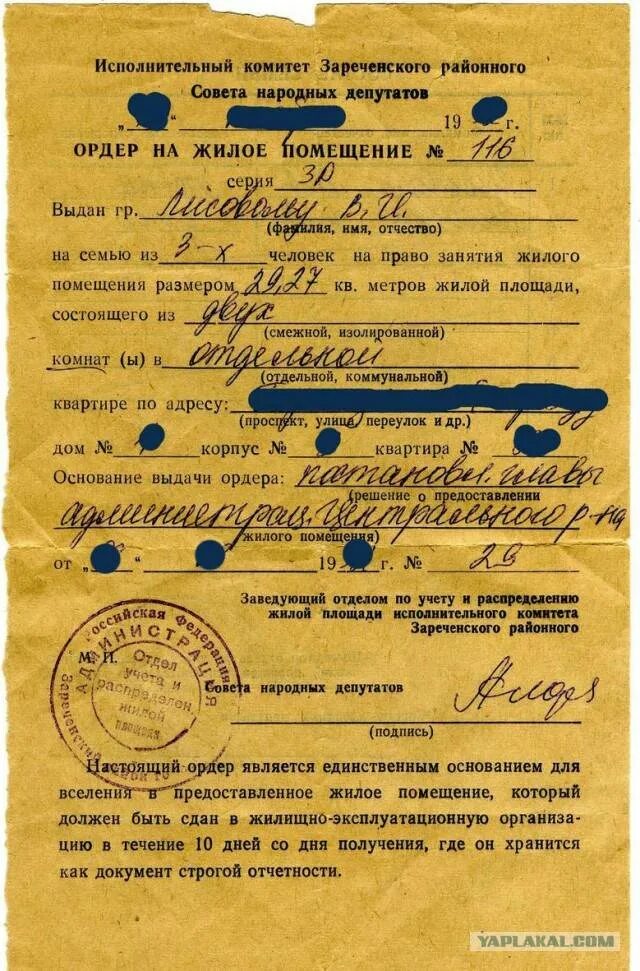 Исполнительный комитет Зареченского районного
Совета народных депутатов
„ “ 19 г.
ОРДЕР НА ЖИЛОЕ ПОМЕЩЕНИЕ № 116
серия ЗР
Выдан гр. Лисовому В. И.
(фамилия, имя, отчество)
на семью из 3-х человек на право занятия жилого
помещения размером 29,27 кв. метров жилой площади,
состоящего из двух
(смежной, изолированной)
комнат (ы) в отдельной
(отдельной, коммунальной)
квартире по адресу:
(проспект, улица, переулок и др.)
дом № корпус № квартира №
Основание выдачи ордера: постановл. главы
(решение о предоставлении
администрац. Центрального р-на
жилого помещения)
от „ “ 19 г. № 29
Заведующий отделом по учету и распределению
жилой площади исполнительного комитета
Зареченского районного
М. П.
Совета народных депутатов
(подпись)
Российская Федерация
АДМИНИСТРАЦИЯ
Отдел
учета и
распределен.
жилой
площади
Настоящий ордер является единственным основанием для
вселения в предоставленное жилое помещение, который
должен быть сдан в жилищно-эксплуатационную организа-
цию в течение 10 дней со дня получения, где он хранится
как документ строгой отчетности.
YAPLAKAL.COM